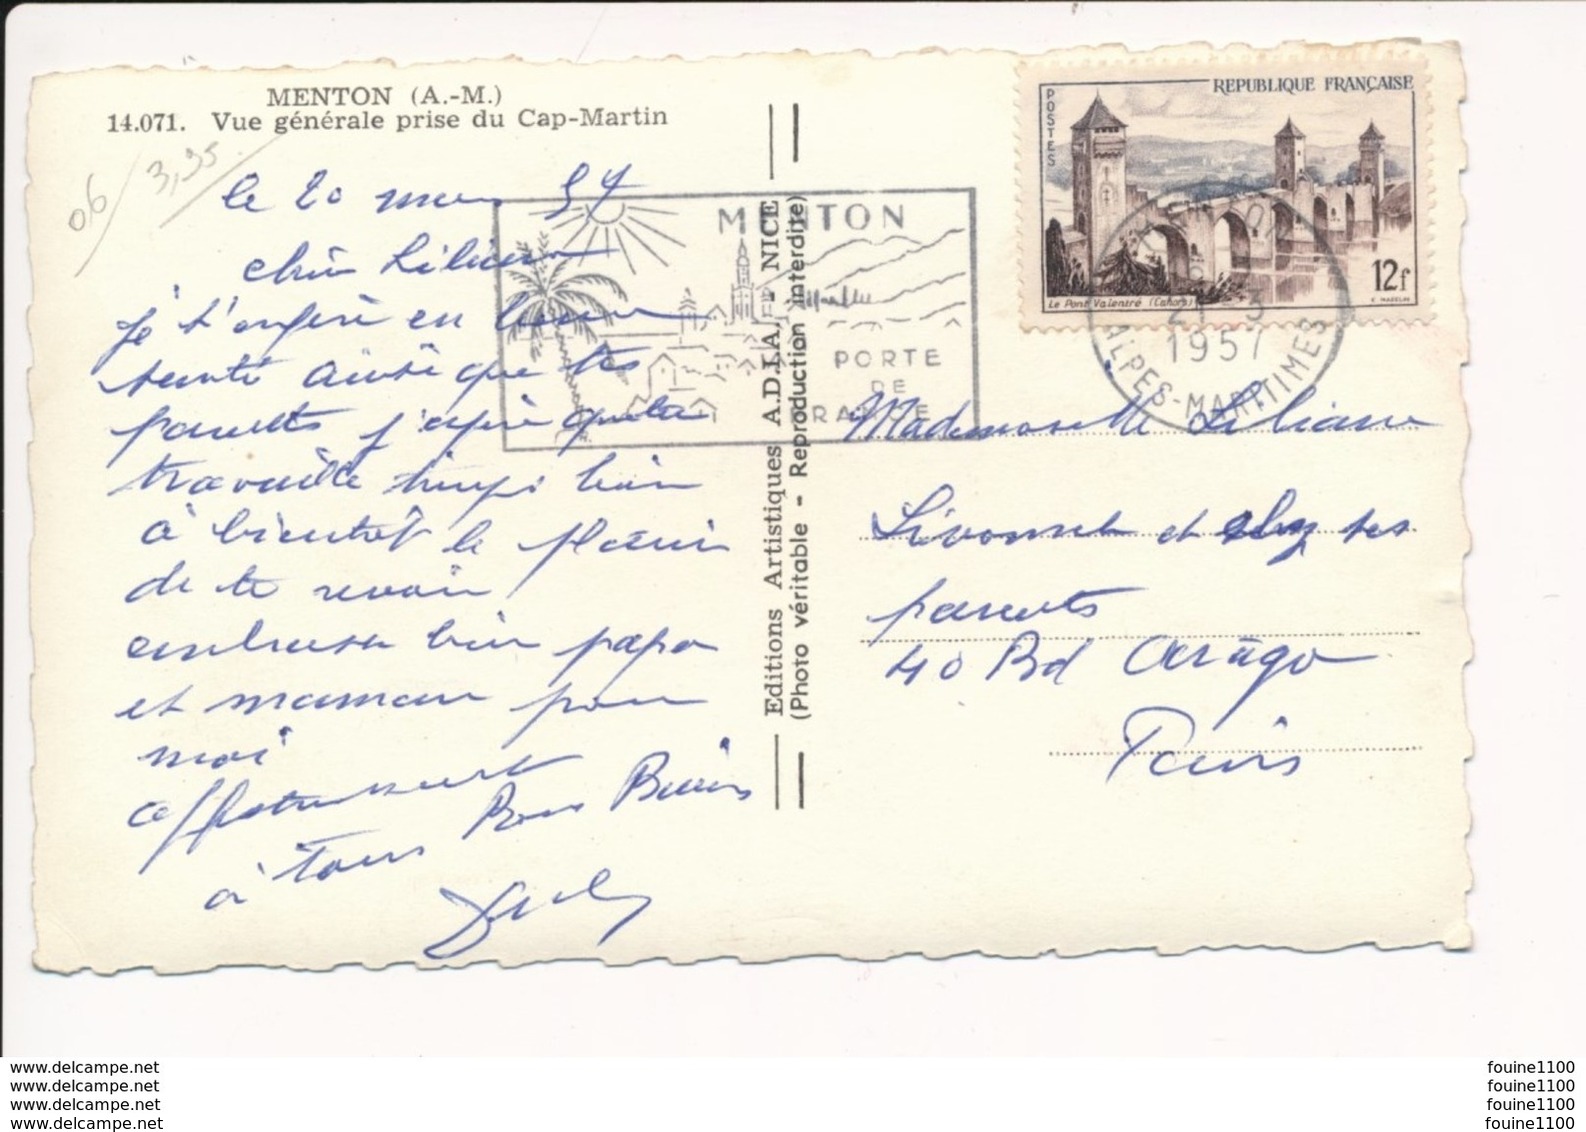 MENTON (A.-M.)
14.071. Vue générale prise du Cap-Martin
06 / 3,95
le 20 mars 57
chère Liliane
je t'espère en bonne
santé ainsi que tes
parents j'espère que tu
travaille bien
à bientôt le plaisir
de te revoir
embrasse bien papa
et maman pour
moi
affectueusement
à tous Bons Baisers
Editions Artistiques A.D.I.A. - NICE
(Photo véritable - Reproduction interdite)
MENTON
PORTE
DE
FRANCE
REPUBLIQUE FRANÇAISE
POSTES
Le Pont Valentré (Cahors)
12f
21 3
1957
ALPES-MARITIMES
Mademoiselle Liliane
et ses
parents
40 Bd Arago
Paris
www.delcampe.net
www.delcampe.net
www.delcampe.net
www.delcampe.net
fouine1100
fouine1100
fouine1100
fouine1100